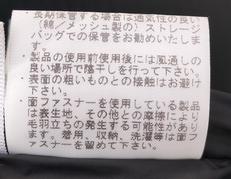 ・長期保管する場合は通気性の良い
(綿／メッシュ製の)ストレージ
バッグでの保管をお勧めいたしま
す。
・製品の使用前使用後には風通しの
良い場所で陰干しを行って下さい。
・表面の粗いものとの接触はお避け
下さい。
・面ファスナーを使用している製品
は表生地、その他との摩擦により
毛羽立ちの発生する可能性があり
ます。着用、収納、洗濯等は面フ
ァスナーを留めて下さい。